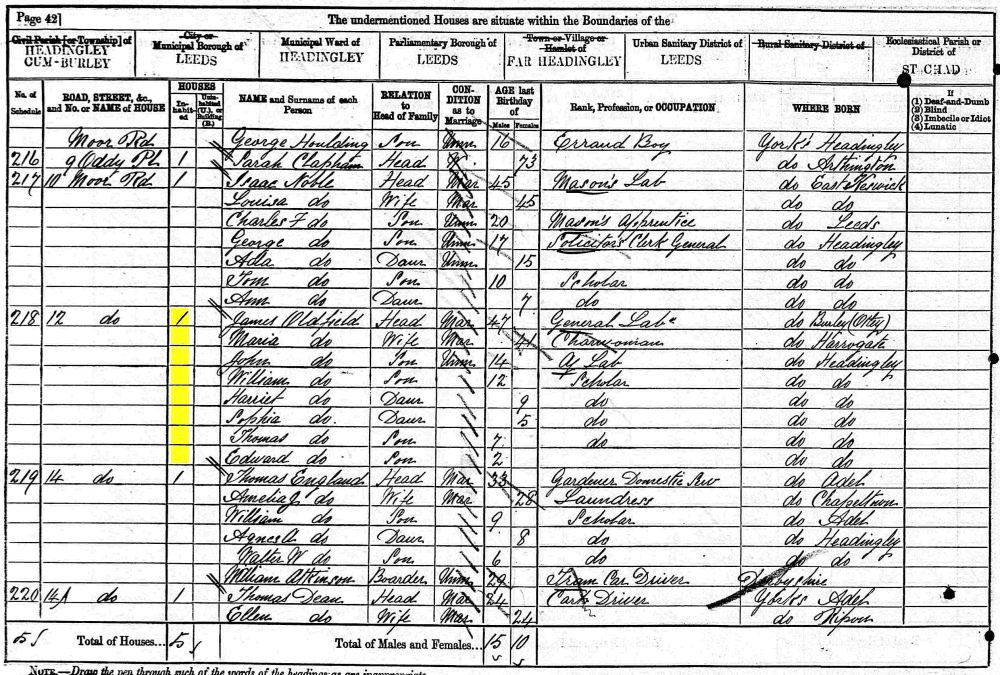 Page 42] The undermentioned Houses are situate within the Boundaries of the
Civil Parish [or Township] of City or Municipal Borough of Municipal Ward of Parliamentary Borough of Town or Village or Hamlet of Urban Sanitary District of Rural Sanitary District of Ecclesiastical Parish or District of
HEADINGLEY CUM-BURLEY LEEDS HEADINGLEY LEEDS FAR HEADINGLEY LEEDS ST CHAD
No. of Schedule ROAD, STREET, &c., and No. or NAME of HOUSE HOUSES In-habit-ed Unin-habited (U.), or Building (B.) NAME and Surname of each Person RELATION to Head of Family CON-DITION as to Marriage AGE last Birthday of Males Females Rank, Profession, or OCCUPATION WHERE BORN If (1) Deaf-and-Dumb (2) Blind (3) Imbecile or Idiot (4) Lunatic
Moor Rd George Houlding Son Unm 16 Errand Boy York's Headingley
216 9 Oddy Pl 1 Sarah Clapham Head W. 73 do Arthington
217 10 Moor Rd 1 Isaac Noble Head Mar 45 Mason's Lab do East Keswick
Louisa do Wife Mar 45 do do
Charles F do Son Unm 20 Mason's Apprentice do Leeds
George do Son Unm 17 Solicitors Clerk General do Headingley
Ada do Daur Unm 15 do do
Tom do Son 10 Scholar do do
Ann do Daur 7 do do do
218 12 do 1 James Oldfield Head Mar 47 General Lab do Burley (Otley)
Maria do Wife Mar 41 Charwoman do Harrogate
John do Son Unm 14 Ag Lab do Headingley
William do Son 12 Scholar do do
Harriet do Daur 9 do do do
Sophia do Daur 5 do do do
Thomas do Son 7 do do do
Edward do Son 2 do do
219 14 do 1 Thomas England Head Mar 33 Gardener Domestic Serv do Adel
Amelia J do Wife Mar 28 Laundress do Chapeltown
William do Son 9 Scholar do Adel
Agnes A do Daur 8 do do Headingley
Walter W do Son 6 do do do
William Atkinson Boarder Unm 29 Tram Car Driver Derbyshire
220 14A do 1 Thomas Dean Head Mar 24 Cart Driver Yorks Adel
Ellen do Wife Mar 24 do Ripon
5 Total of Houses... 5 Total of Males and Females... 15 10
NOTE.—Draw the pen through such of the words of the headings as are inappropriate.